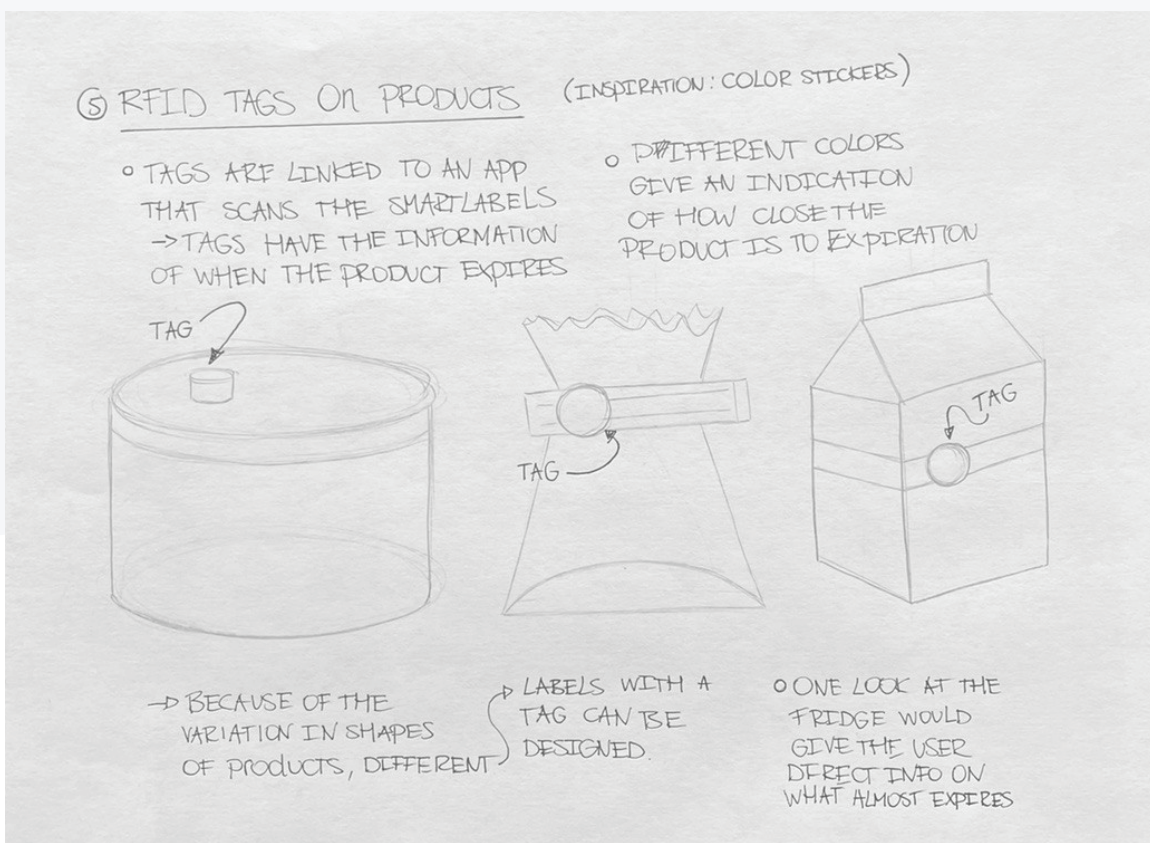 ⑤ RFID TAGS On PRODUCTS (INSPIRATION: COLOR STICKERS)
○ TAGS ARE LINKED TO AN APP
THAT SCANS THE SMARTLABELS
→ TAGS HAVE THE INFORMATION
OF WHEN THE PRODUCT EXPIRES
○ DIFFERENT COLORS
GIVE AN INDICATION
OF HOW CLOSE THE
PRODUCT IS TO EXPIRATION
TAG
TAG
TAG
→ BECAUSE OF THE
VARIATION IN SHAPES
OF PRODUCTS, DIFFERENT
LABELS WITH A
TAG CAN BE
DESIGNED.
○ ONE LOOK AT THE
FRIDGE WOULD
GIVE THE USER
DIRECT INFO ON
WHAT ALMOST EXPIRES